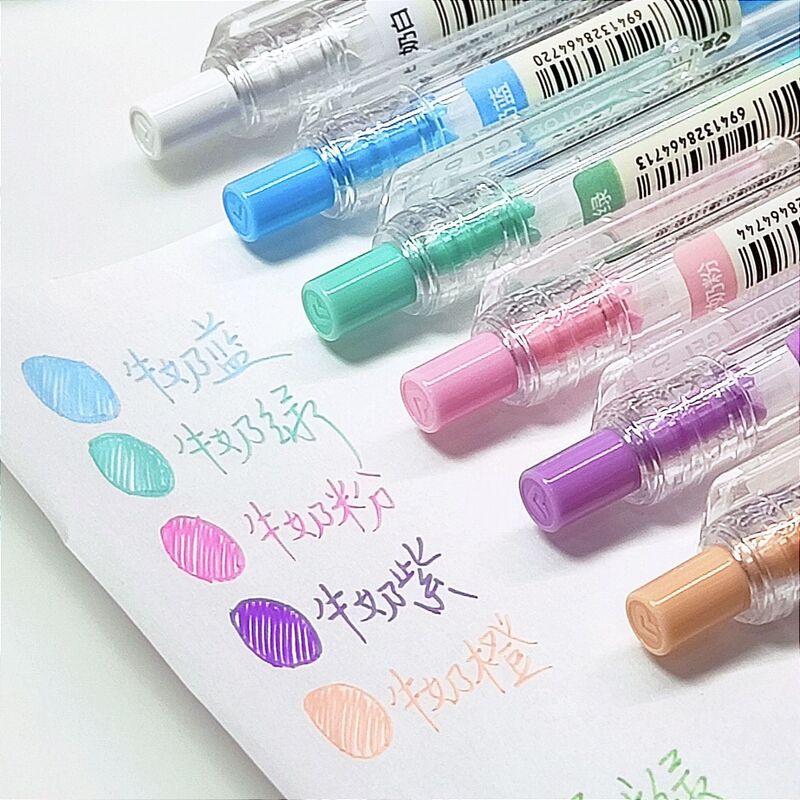 奶白
6941328464720
奶蓝
COLOR GEL
6941328464713
绿
328464744
奶粉
牛奶蓝
牛奶绿
牛奶粉
牛奶紫
牛奶橙
绿